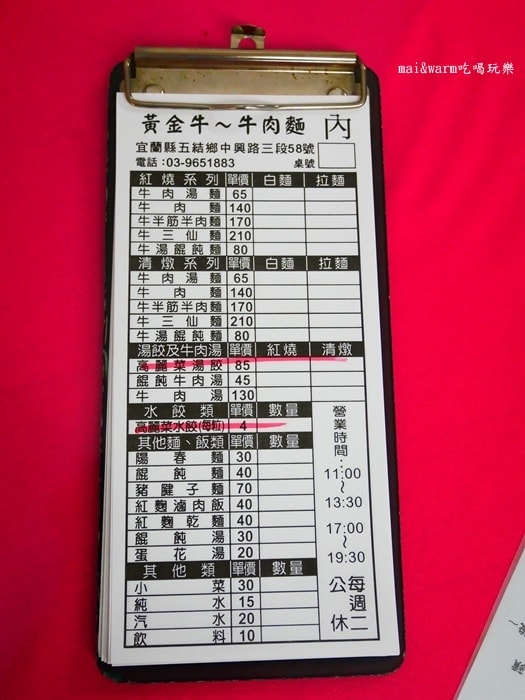 mai&warm吃喝玩樂
黃金牛～牛肉麵 內
宜蘭縣五結鄉中興路三段58號
電話：03-9651883 桌號
紅燒系列 單價 白麵 拉麵
牛肉湯麵 65
牛肉麵 140
牛半筋半肉麵 170
牛三仙麵 210
牛湯餛飩麵 80
清燉系列 單價 白麵 拉麵
牛肉湯麵 65
牛肉麵 140
牛半筋半肉麵 170
牛三仙麵 210
牛湯餛飩麵 80
湯餃及牛肉湯 單價 紅燒 清燉
高麗菜湯餃 85
餛飩牛肉湯 45
牛肉湯 130
水餃類 單價 數量
高麗菜水餃(每粒) 4
其他麵、飯類 單價 數量
陽春麵 30
餛飩麵 40
豬腱子麵 70
紅麴滷肉飯 40
紅麴乾麵 40
餛飩湯 30
蛋花湯 20
其他類 單價 數量
小菜 30
純水 15
汽水 20
飲料 10
營業時間：
11:00
～
13:30
17:00
～
19:30
每週二
公休